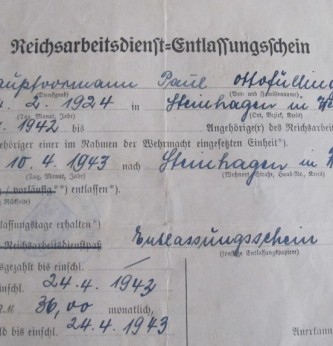 Reichsarbeitsdienst=Entlassungsschein
Hauptvormann Paul
(Dienstgrad) (Vor- und Familienname)
. 2. 1924 in Steinhagen in
(Tag, Monat, Jahr) (Ort, Bezirk, Kreis)
. 1942 bis Angehörige(r) des Reichsarbeit
Monat, Jahr)
gehöriger einer im Rahmen der Wehrmacht eingesetzten Einheit*)
10. 4. 1943 nach Steinhagen in
(Tag, Monat, Jahr) (Wohnort, Straße, Haus-Nr., Kreis)
/ vorläufig *) entlassen*).
lassungstage erhalten*)
Reichsarbeitsdienstpaß Entlassungsschein
(sonstige Entlassungspapiere)
sgezahlt bis einschl.
inschl. 24. 4. 1943
36,00 monatlich,
ld bis einschl. 24. 4. 1943
Anerkann